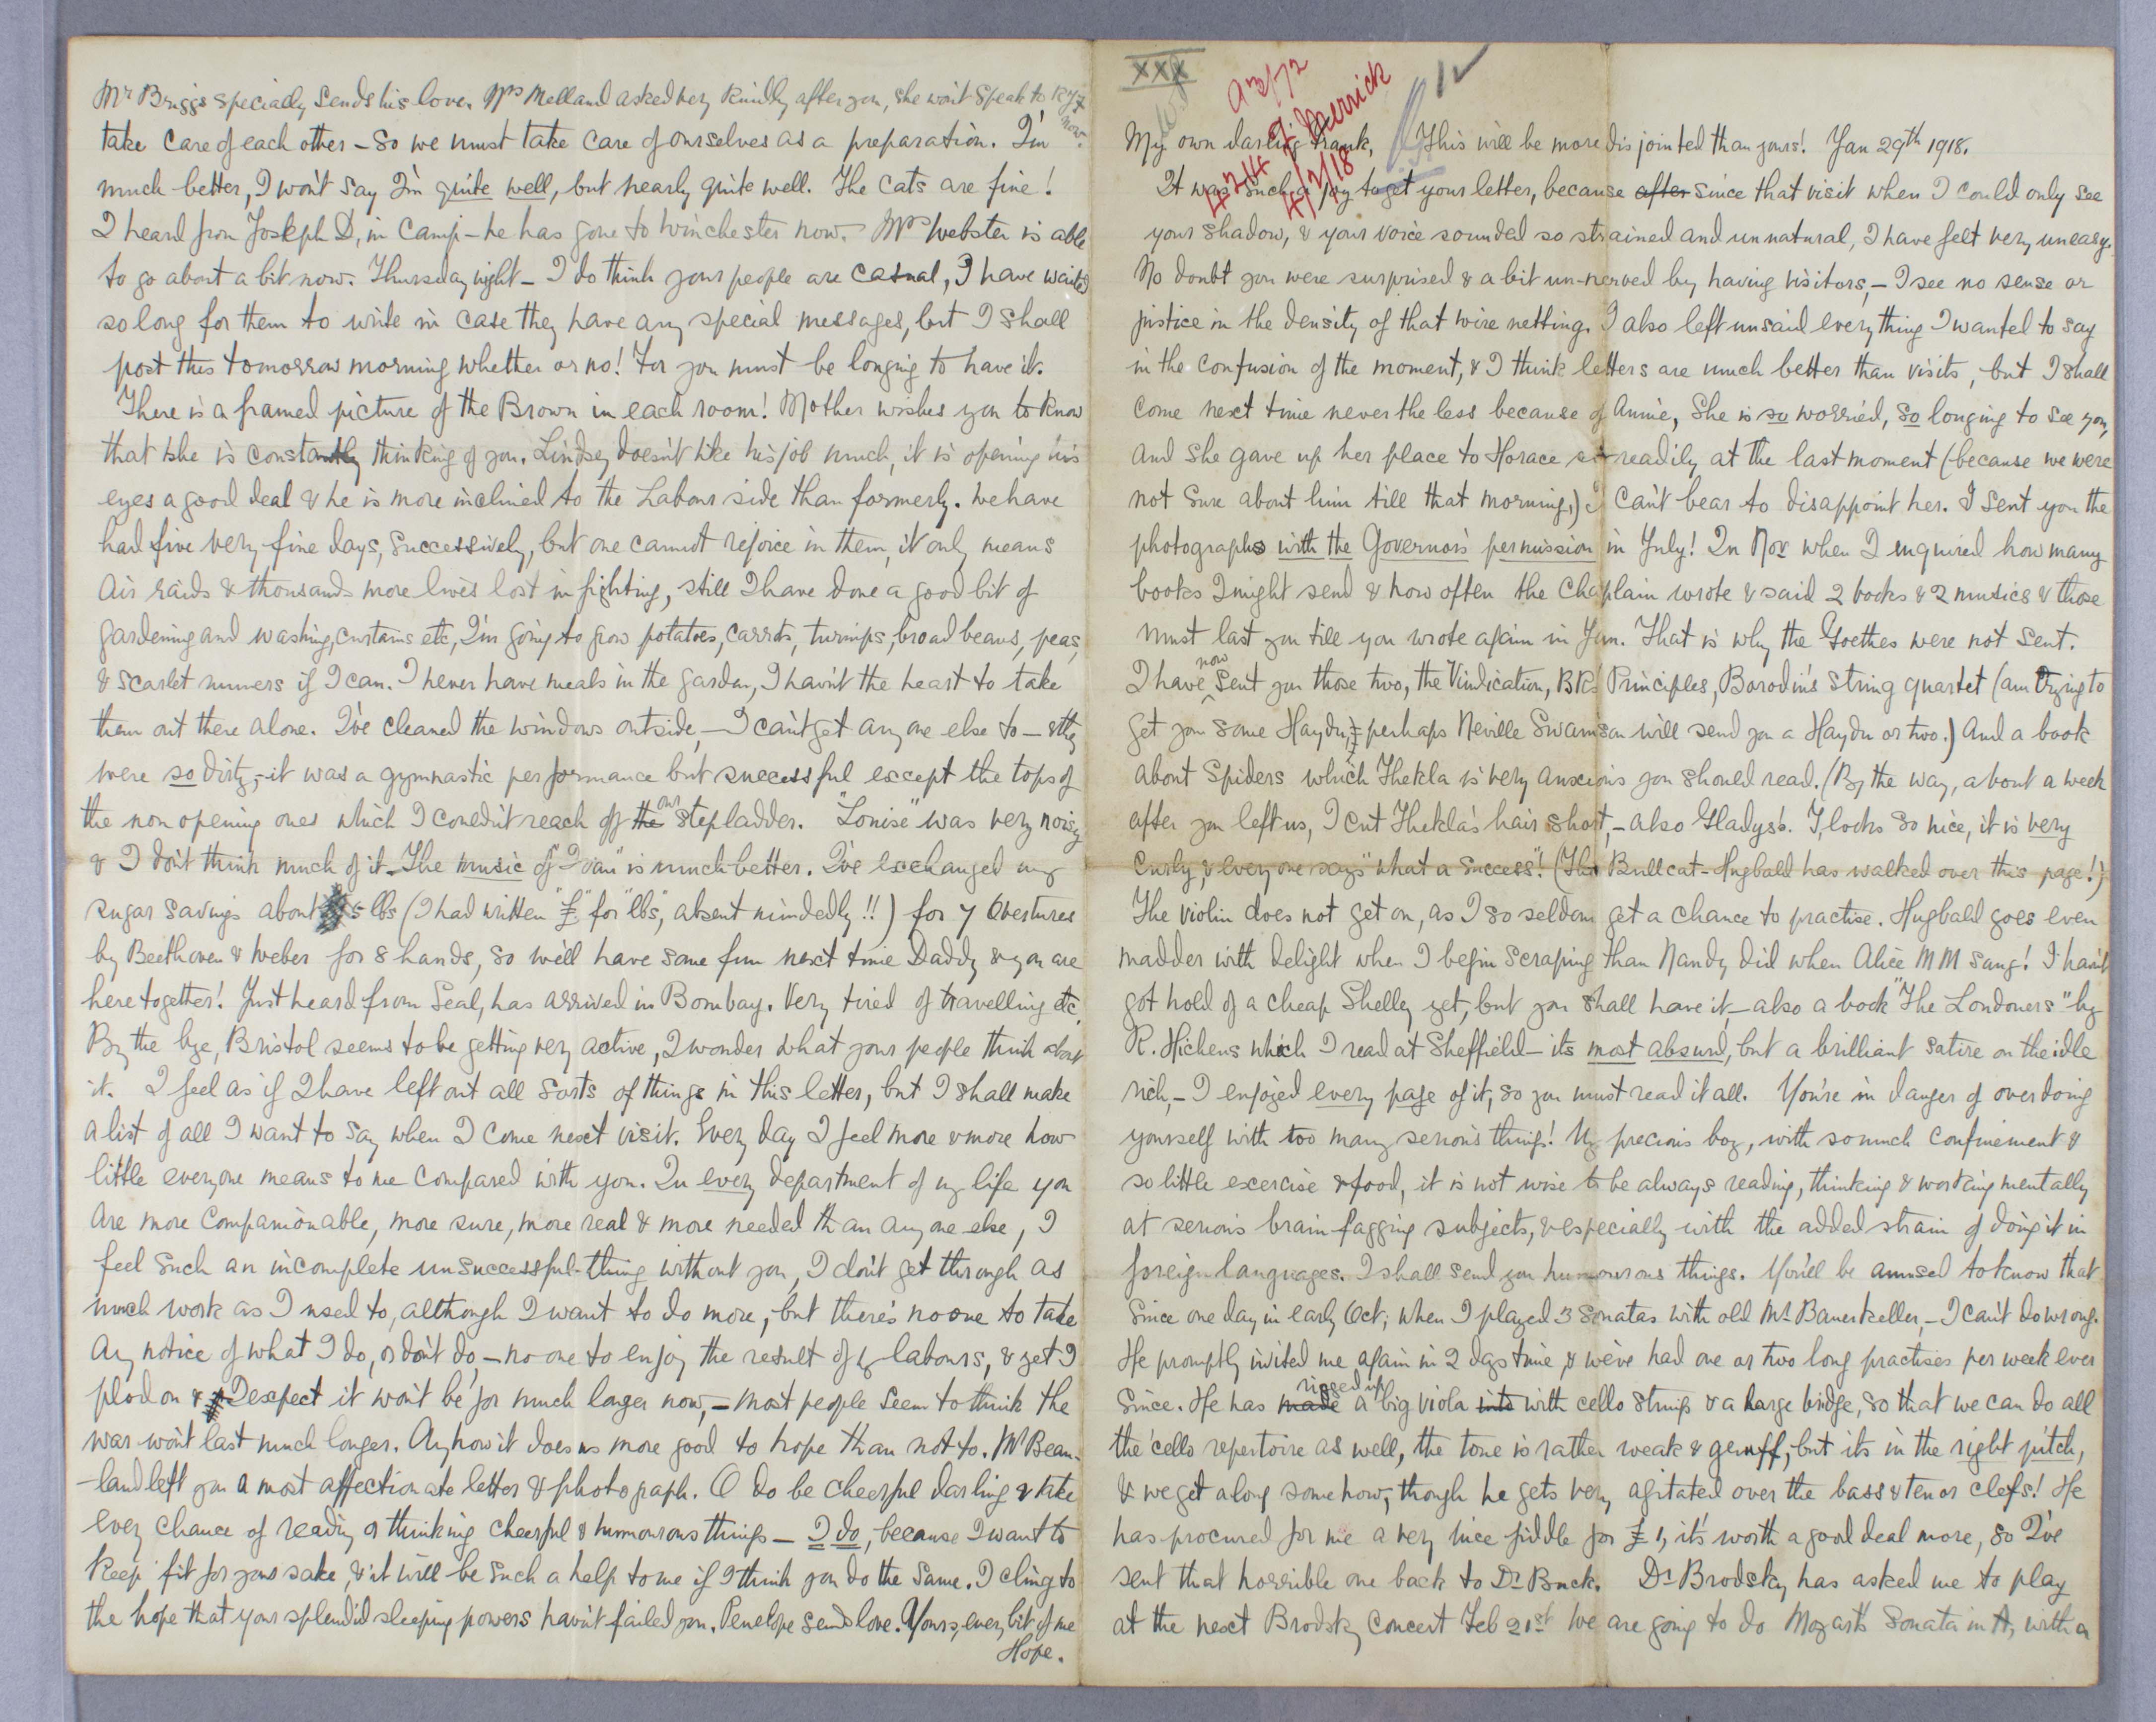 XXX
a3/72
F Merrick
4244
4/2/18
My own darling Frank, This will be more disjointed than yours! Jan 29th 1918.
It was such a joy to get your letter, because after since that visit when I could only see
your shadow, & your voice sounded so strained and unnatural, I have felt very uneasy.
No doubt you were surprised & a bit un-nerved by having visitors, – I see no sense or
justice in the density of that wire netting. I also left unsaid everything I wanted to say
in the confusion of the moment, & I think letters are much better than visits, but I shall
come next time never the less because of Annie, she is so worried, so longing to see you,
and she gave up her place to Horace so readily at the last moment (because we were
not sure about him till that morning,) I can't bear to disappoint her. I sent you the
photographs with the Governor's permission in July! In Nov when I enquired how many
books I might send & how often the Chaplain wrote & said 2 books & 2 musics & those
must last you till you wrote again in Jan. That is why the Goethes were not sent.
I have now sent you those two, the Vindication, BR's Principles, Borodin's string quartet (am trying to
get you some Haydn, & perhaps Neville Swainson will send you a Haydn or two.) And a book
about Spiders which Thekla is very anxious you should read. (By the way, about a week
after you left us, I cut Thekla's hair short, – also Gladys's. T, looks so nice, it is very
curly, & every one says "what a success"! (The Bullcat – Hugbald has walked over this page!)
The violin does not get on, as I so seldom get a chance to practise. Hugbald goes even
madder with delight when I begin scraping than Nandy did when Alice MM sang! I havn't
got hold of a cheap Shelley yet, but you shall have it, – also a book "The Londoners" by
R. Hichens which I read at Sheffield – its most absurd, but a brilliant satire on the idle
rich, – I enjoyed every page of it, so you must read it all. You're in danger of overdoing
yourself with too many serious things! My precious boy, with so much confinement &
so little exercise & food, it is not wise to be always reading, thinking & working mentally
at serious brain fagging subjects, & especially with the added strain of doing it in
foreign languages. I shall send you humourous things. You'll be amused to know that
since one day in early Oct; when I played 3 Sonatas with old Mr Bauerkeller, – I can't do wrong.
He promptly invited me again in 2 days time, & we've had one or two long practises per week ever
since. He has made rigged up a big viola into with cello strings & a large bridge, so that we can do all
the 'cello repertoire as well, the tone is rather weak & gruff, but its in the right pitch,
& we get along somehow, though he gets very agitated over the bass & tenor clefs! He
has procured for me a very nice fiddle for £1, it's worth a good deal more, so I've
sent that horrible one back to Dr Buck. Dr Brodsky has asked me to play
at the next Brodsky Concert Feb 21st We are going to do Mozart's Sonata in A, with a
Mr Briggs specially sends his love. Mrs Melland asked very kindly after you, she won't speak to
now.
take care of each other – so we must take care of ourselves as a preparation. I'm
much better, I won't say I'm quite well, but nearly quite well. The cats are fine!
I heard from Joseph D, in camp – he has gone to Winchester now. Mrs Webster is able
to go about a bit now. Thursday night – I do think your people are casual, I have waited
so long for them to write in case they have any special messages, but I shall
post this tomorrow morning whether or no! For you must be longing to have it.
There is a framed picture of the Brown in each room! Mother wishes you to know
that she is constantly thinking of you. Lindsey doesn't like his job much, it is opening his
eyes a good deal & he is more inclined to the Labour side than formerly. We have
had five very fine days, successively, but one cannot rejoice in them, it only means
air raids & thousands more lives lost in fighting, still I have done a good bit of
gardening and washing, curtains etc, I'm going to grow potatoes, carrots, turnips, broad beans, peas,
& scarlet runners if I can. I never have meals in the garden, I havn't the heart to take
them out there alone. I've cleaned the windows outside, – I can't get any one else to – & they
were so dirty, – it was a gymnastic performance but successful except the tops of
the non opening ones which I couldn't reach off the our stepladder. "Louise" was very noisy
& I don't think much of it. The music of "Ivan" is much better. I've exchanged my
sugar savings about 5 lbs (I had written "£" for "lbs", absent mindedly!!) for 7 Overtures
by Beethoven & Weber for 8 hands, so we'll have some fun next time Daddy & you are
here together! Just heard from Seal, has arrived in Bombay. Very tired of travelling etc.
By the bye, Bristol seems to be getting very active, I wonder what your people think about
it. I feel as if I have left out all sorts of things in this letter, but I shall make
a list of all I want to say when I come next visit. Every day I feel more & more how
little everyone means to me compared with you. In every department of my life you
are more companionable, more sure, more real & more needed than any one else, I
feel such an incomplete unsuccessful thing without you, I don't get through as
much work as I used to, although I want to do more, but there's no one to take
any notice of what I do, or don't do – no one to enjoy the result of my labours, & yet I
plod on & I expect it won't be for much longer now, – most people seem to think the
war won't last much longer. Anyhow it does us more good to hope than not to. Mr Bean-
-land left you a most affectionate letter & photograph. O do be cheerful darling & take
every chance of reading or thinking cheerful & humourous things – I do, because I want to
keep fit for your sake, & it will be such a help to me if I think you do the same. I cling to
the hope that your splendid sleeping powers havn't failed you. Penelope sends love. Yours, every bit of me
Hope.